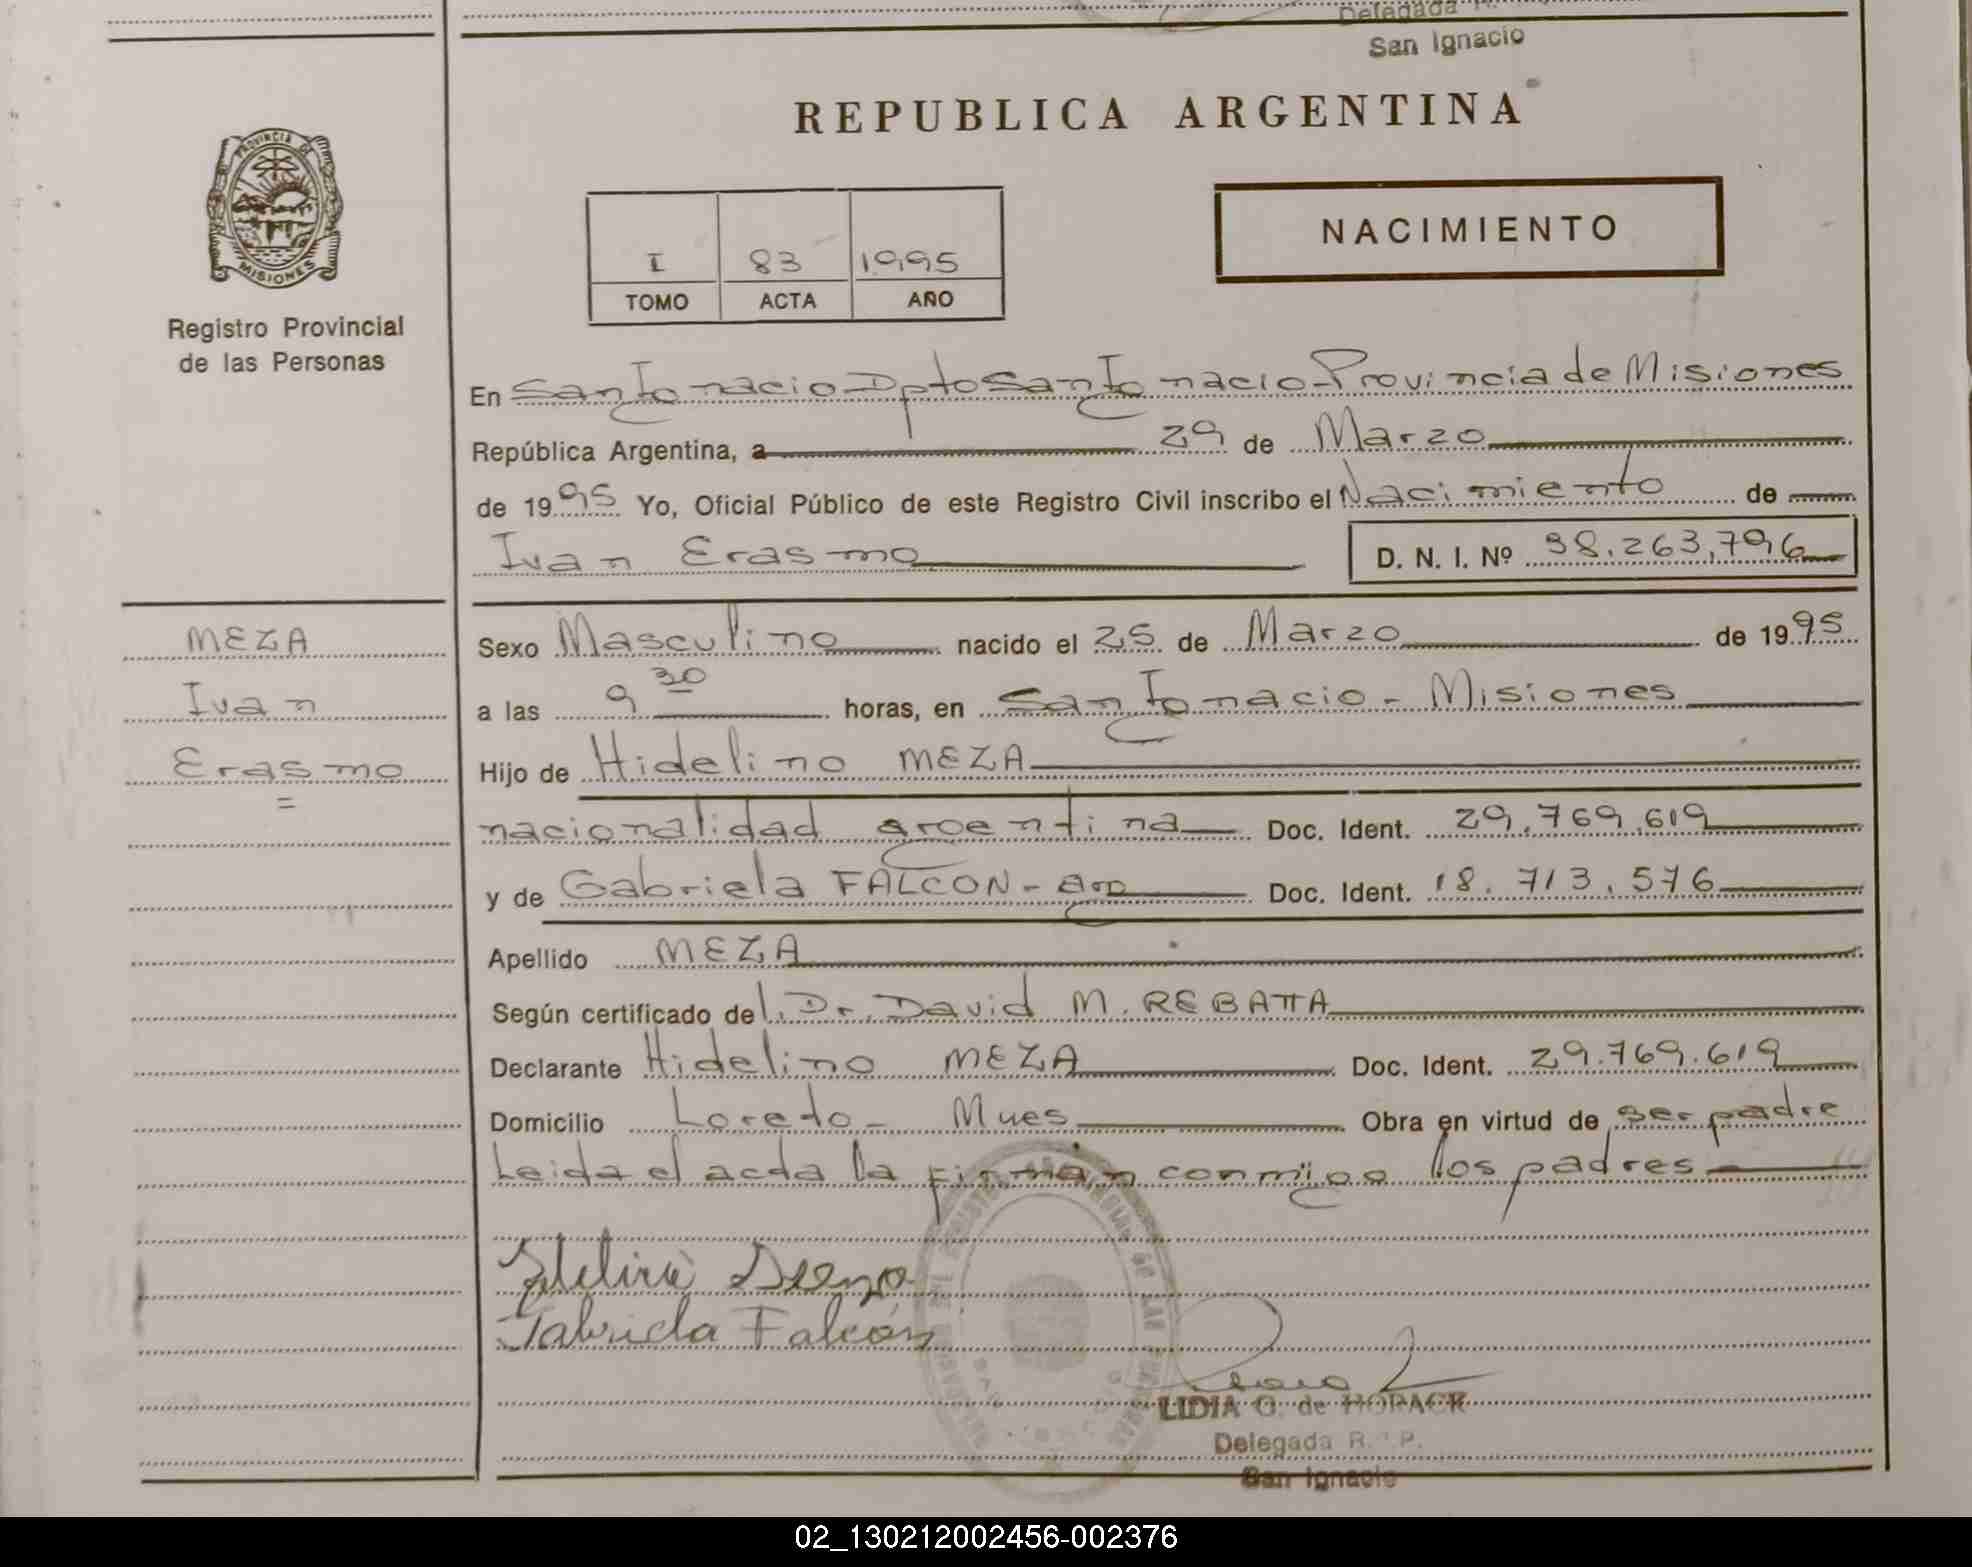 Delegada R.
San Ignacio
REPUBLICA ARGENTINA
PROVINCIA DE
MISIONES
Registro Provincial
de las Personas
I 83 1995
TOMO ACTA AÑO
NACIMIENTO
En San Ignacio - Dpto San Ignacio - Provincia de Misiones
República Argentina, a 29 de Marzo
de 1995 Yo, Oficial Público de este Registro Civil inscribo el Nacimiento de
Ivan Erasmo D. N. I. Nº 38.263.796
MEZA
Ivan
Erasmo
=
Sexo Masculino nacido el 25 de Marzo de 1995
a las 9 30 horas, en San Ignacio - Misiones
Hijo de Hidelino MEZA
nacionalidad argentina Doc. Ident. 29.769.619
y de Gabriela FALCON - arg Doc. Ident. 18.713.576
Apellido MEZA
Según certificado del Dr. David M. REBATTA
Declarante Hidelino MEZA Doc. Ident. 29.769.619
Domicilio Loreto - Mnes Obra en virtud de ser padre
Leida el acta la firman conmigo los padres
Gabriela Falcón
LIDIA G. de HORACK
Delegada R. P.
San Ignacio
02_130212002456-002376